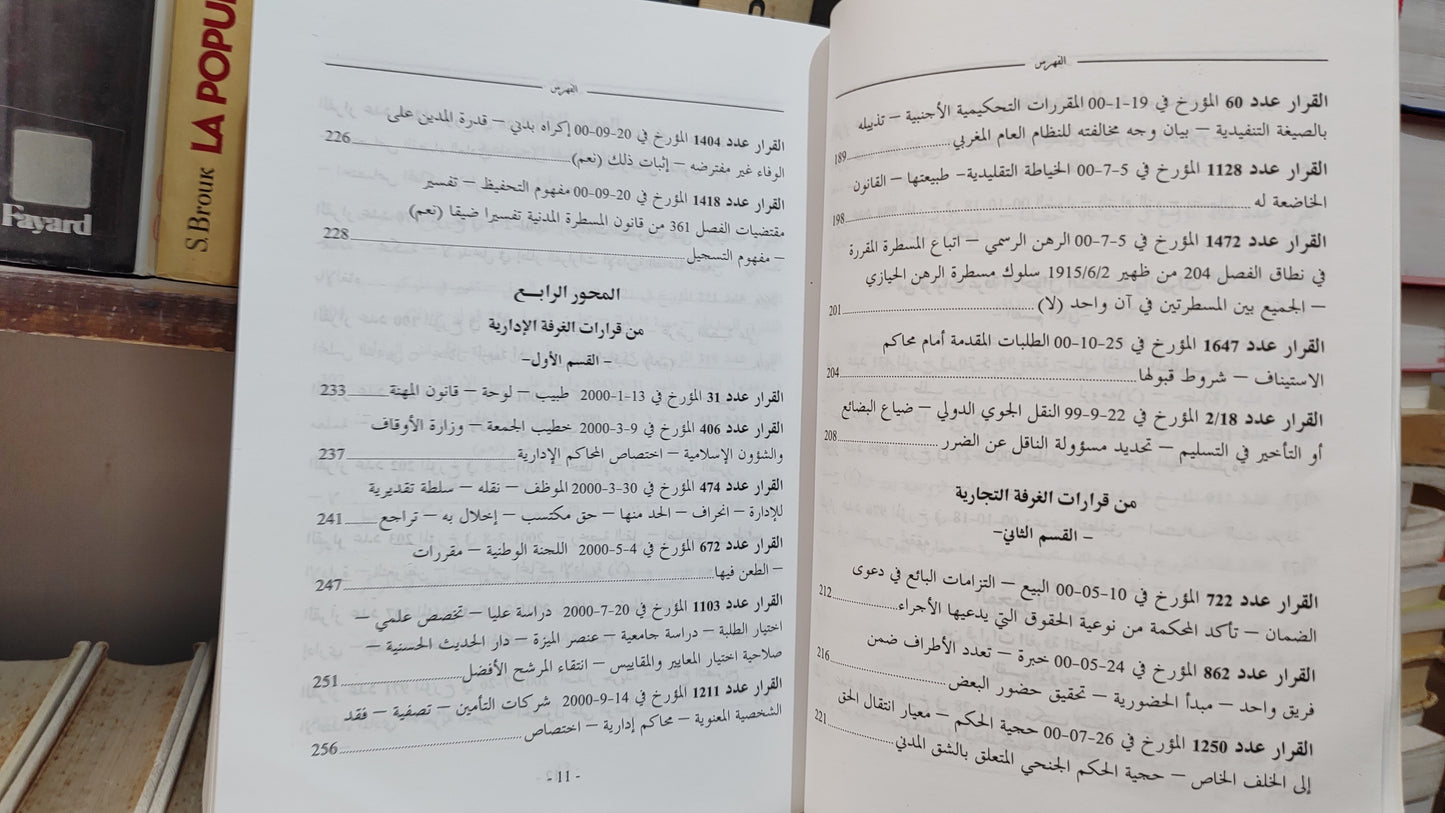 Fayard
S. BROUK LA POPU
الفهرس
القرار عدد 60 المؤرخ في 19-1-00 المقررات التحكيمية الأجنبية – تذييله
بالصيغة التنفيدية – بيان وجه مخالفته للنظام العام المغربي 189
القرار عدد 1128 المؤرخ في 5-7-00 الخياطة التقليدية- طبيعتها – القانون
الخاضعة له 198
القرار عدد 1472 المؤرخ في 5-7-00 الرهن الرسمي – اتباع المسطرة المقررة
في نطاق الفصل 204 من ظهير 1915/6/2 سلوك مسطرة الرهن الحيازي
– الجميع بين المسطرتين في آن واحد (لا) 201
القرار عدد 1647 المؤرخ في 25-10-00 الطلبات المقدمة أمام محاكم
الاستيناف – شروط قبولها 204
القرار عدد 2/18 المؤرخ في 22-9-99 النقل الجوي الدولي – ضياع البضائع
أو التأخير في التسليم – تحديد مسؤولة الناقل عن الضرر 208
من قرارات الغرفة التجارية
– القسم الثاني-
القرار عدد 722 المؤرخ في 10-05-00 البيع – التزامات البائع في دعوى
الضمان – تأكد المحكمة من نوعية الحقوق التي يدعيها الأجراء 212
القرار عدد 862 المؤرخ في 24-05-00 خبرة – تعدد الأطراف ضمن
فريق واحد – مبدأ الحضورية – تحقيق حضور البعض 216
القرار عدد 1250 المؤرخ في 26-07-00 حجية الحكم – معيار انتقال الحق
إلى الخلف الخاص – حجية الحكم الجنحي المتعلق بالشق المدني 221
الفهرس
القرار عدد 1404 المؤرخ في 20-09-00 إكراه بدني – قدرة المدين على
الوفاء غير مفترضه – إثبات ذلك (نعم) 226
القرار عدد 1418 المؤرخ في 20-09-00 مفهوم التحفيظ – تفسير
مقتضيات الفصل 361 من قانون المسطرة المدنية تفسيرا ضيقا (نعم)
– مفهوم التسجيل 228
المحور الرابـــع
من قرارات الغرفة الإدارية
– القسم الأول-
القرار عدد 31 المؤرخ في 13-1-2000 طبيب – لوحة – قانون المهنة 233
القرار عدد 406 المؤرخ في 9-3-2000 خطيب الجمعة – وزارة الأوقاف
والشؤون الإسلامية – اختصاص المحاكم الإدارية 237
القرار عدد 474 المؤرخ في 30-3-2000 الموظف – نقله – سلطة تقديرية
للإدارة – انحراف – الحد منها – حق مكتسب – إخلال به – تراجع 241
القرار عدد 672 المؤرخ في 4-5-2000 اللجنة الوطنية – مقررات
– الطعن فيها 247
القرار عدد 1103 المؤرخ في 20-7-2000 دراسة عليا – تخصص علمي –
اختيار الطلبة – دراسة جامعية – عنصر الميزة – دار الحديث الحسنية –
صلاحية اختيار المعايير والمقاييس – انتقاء المرشح الأفضل 251
القرار عدد 1211 المؤرخ في 14-9-2000 شركات التأمين – تصفية – فقد
الشخصية المعنوية – محاكم إدارية – اختصاص 256
- 11 -